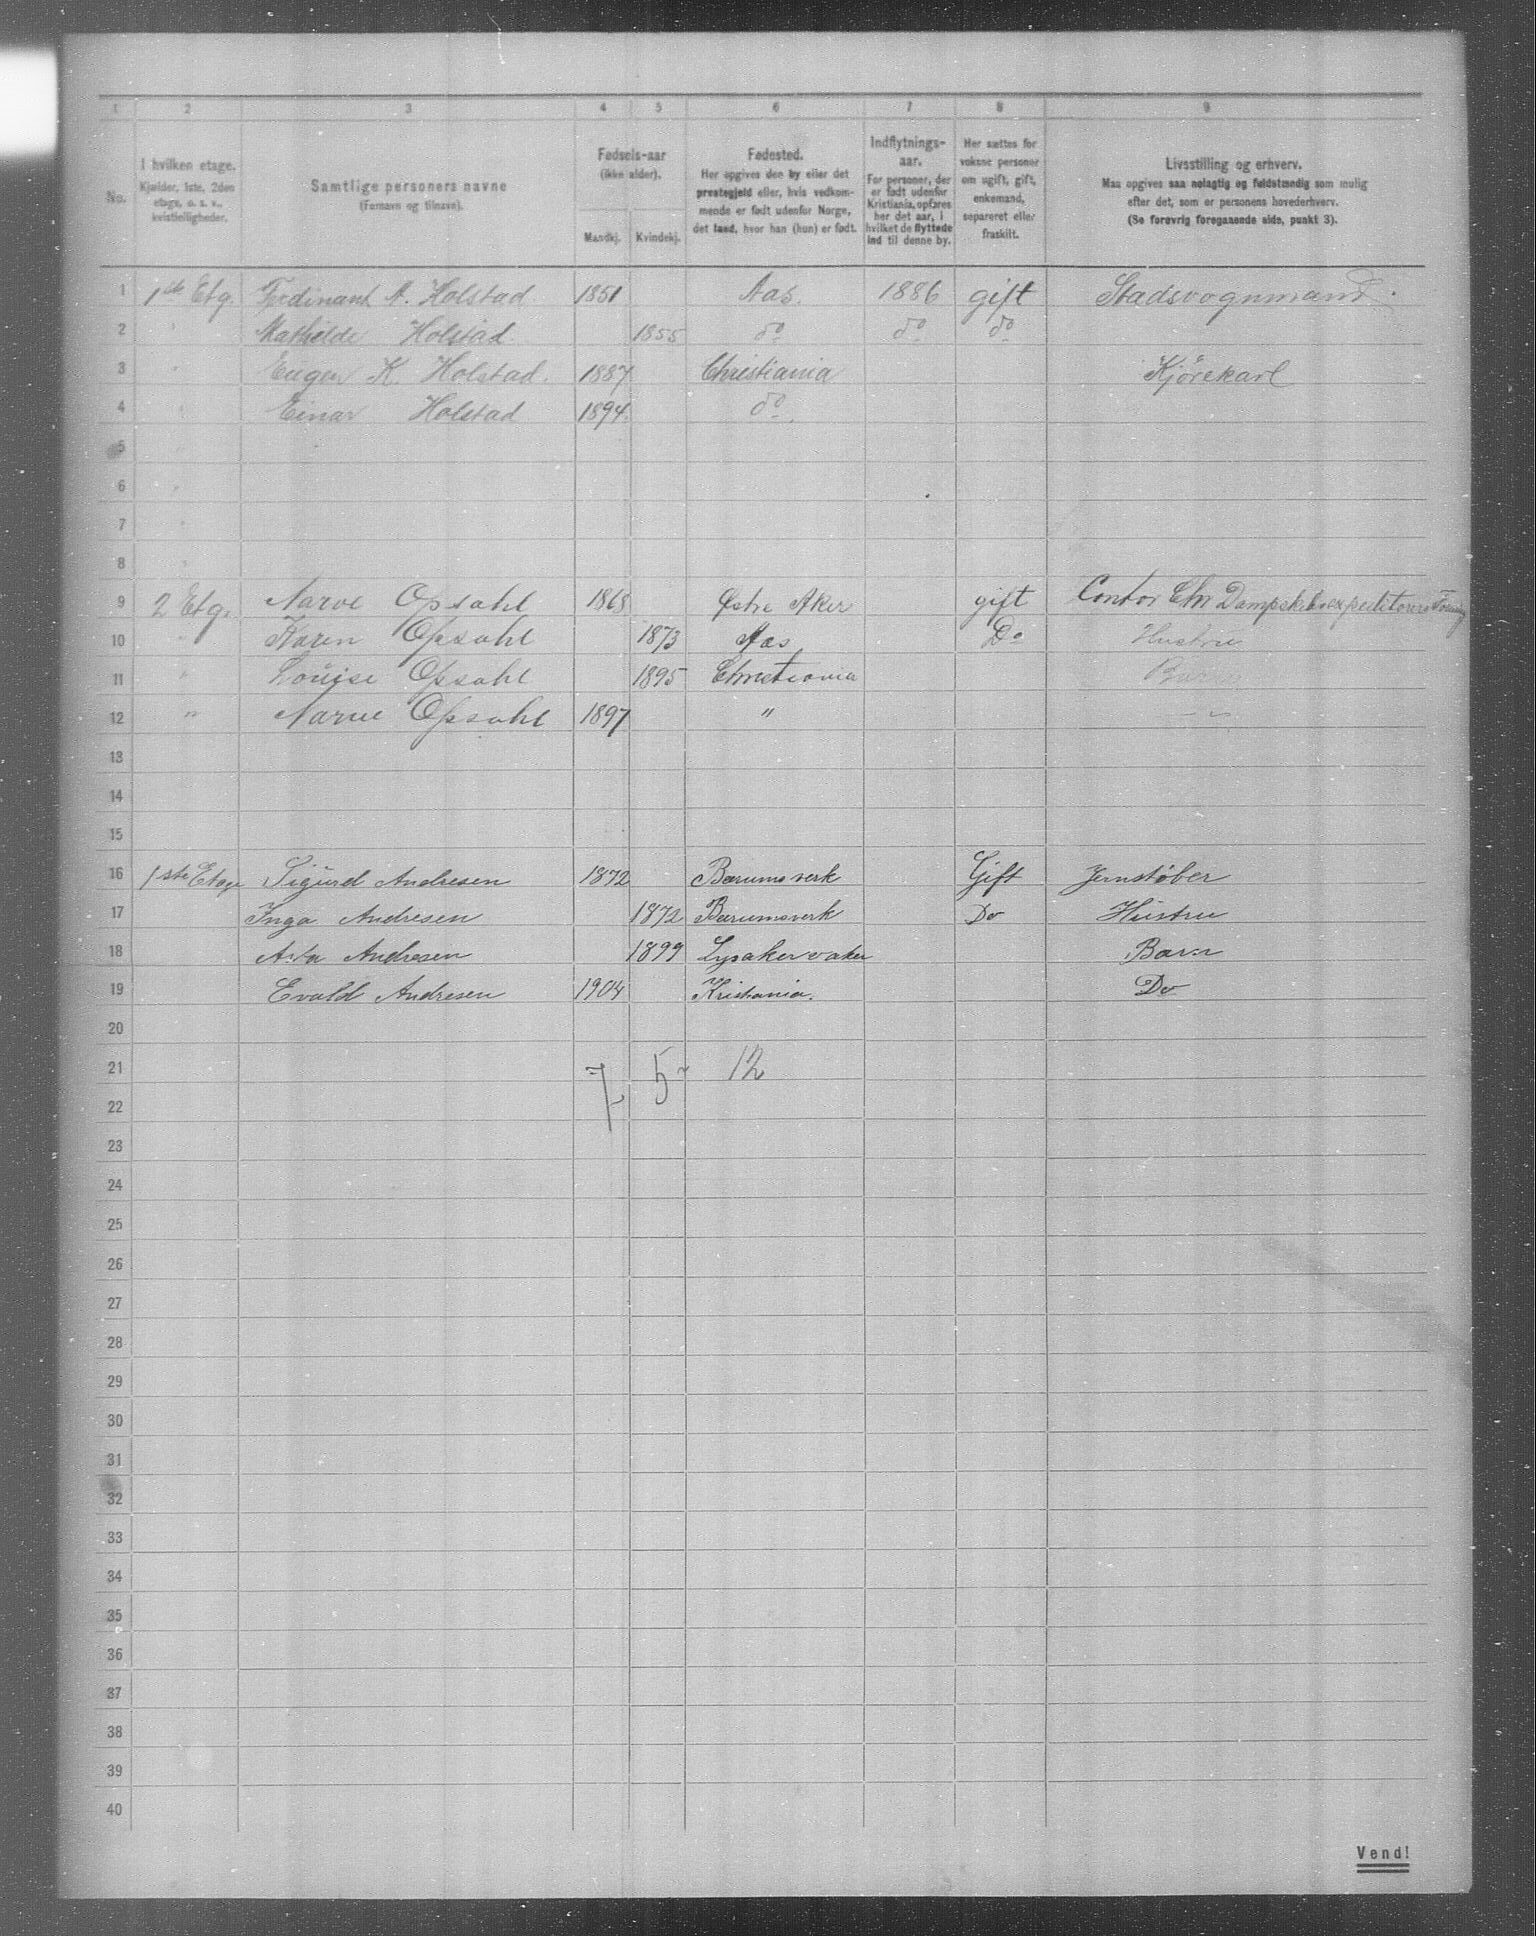 1 2 3 4 5 6 7 8 9
No.
I hvilken etage.
Kjælder, 1ste, 2den
etage, o. s. v.,
kvistleiligheder.
Samtlige personers navne
(Fornavn og tilnavn).
Fødsels-aar
(ikke alder).
Mandkj. Kvindekj.
Fødested.
Her opgives den by eller det
prestegjeld eller, hvis vedkom-
mende er født udenfor Norge,
det land, hvor han (hun) er født.
Indflytnings-
aar.
For personer, der
er født udenfor
Kristiania, opføres
her det aar, i
hvilket de flyttede
ind til denne by.
Her sættes for
voksne personer
om ugift, gift,
enkemand,
separeret eller
fraskilt.
Livsstilling og erhverv.
Maa opgives saa nøiagtig og fuldstændig som mulig
efter det, som er personens hovederhverv.
(Se forøvrig foregaaende side, punkt 3).
1 1ste Etg. Ferdinant A. Holstad 1851 Aas. 1886 gift Stadsvognmand.
2 " Mathilde Holstad 1855 do do do
3 " Eugen K. Holstad. 1887 Christiania Kjørekarl
4 " Einar Holstad 1894. do
5 "
6 "
7 "
8 "
9 2 Etg. Narve Opsahl 1868 Østre Aker gift Contor Chr Dampskibsexpeditørers
10 " Karen Opsahl 1873 Aas Do Hustru
11 " Louise Opsahl 1895 Christiania Barn
12 " Narve Opsahl 1897 " — " —
13
14
15
16 1ste Etage Sigurd Andresen 1872 Bærumsverk Gift Jernstøber
17 Inga Andresen 1872 Bærumsverk Do Hustru
18 Asta Andresen 1899 Lysaker vaker Barn
19 Evald Andresen 1904 Kristiania. Do
20
21 7 5 12
22
23
24
25
26
27
28
29
30
31
32
33
34
35
36
37
38
39
40
Vend!